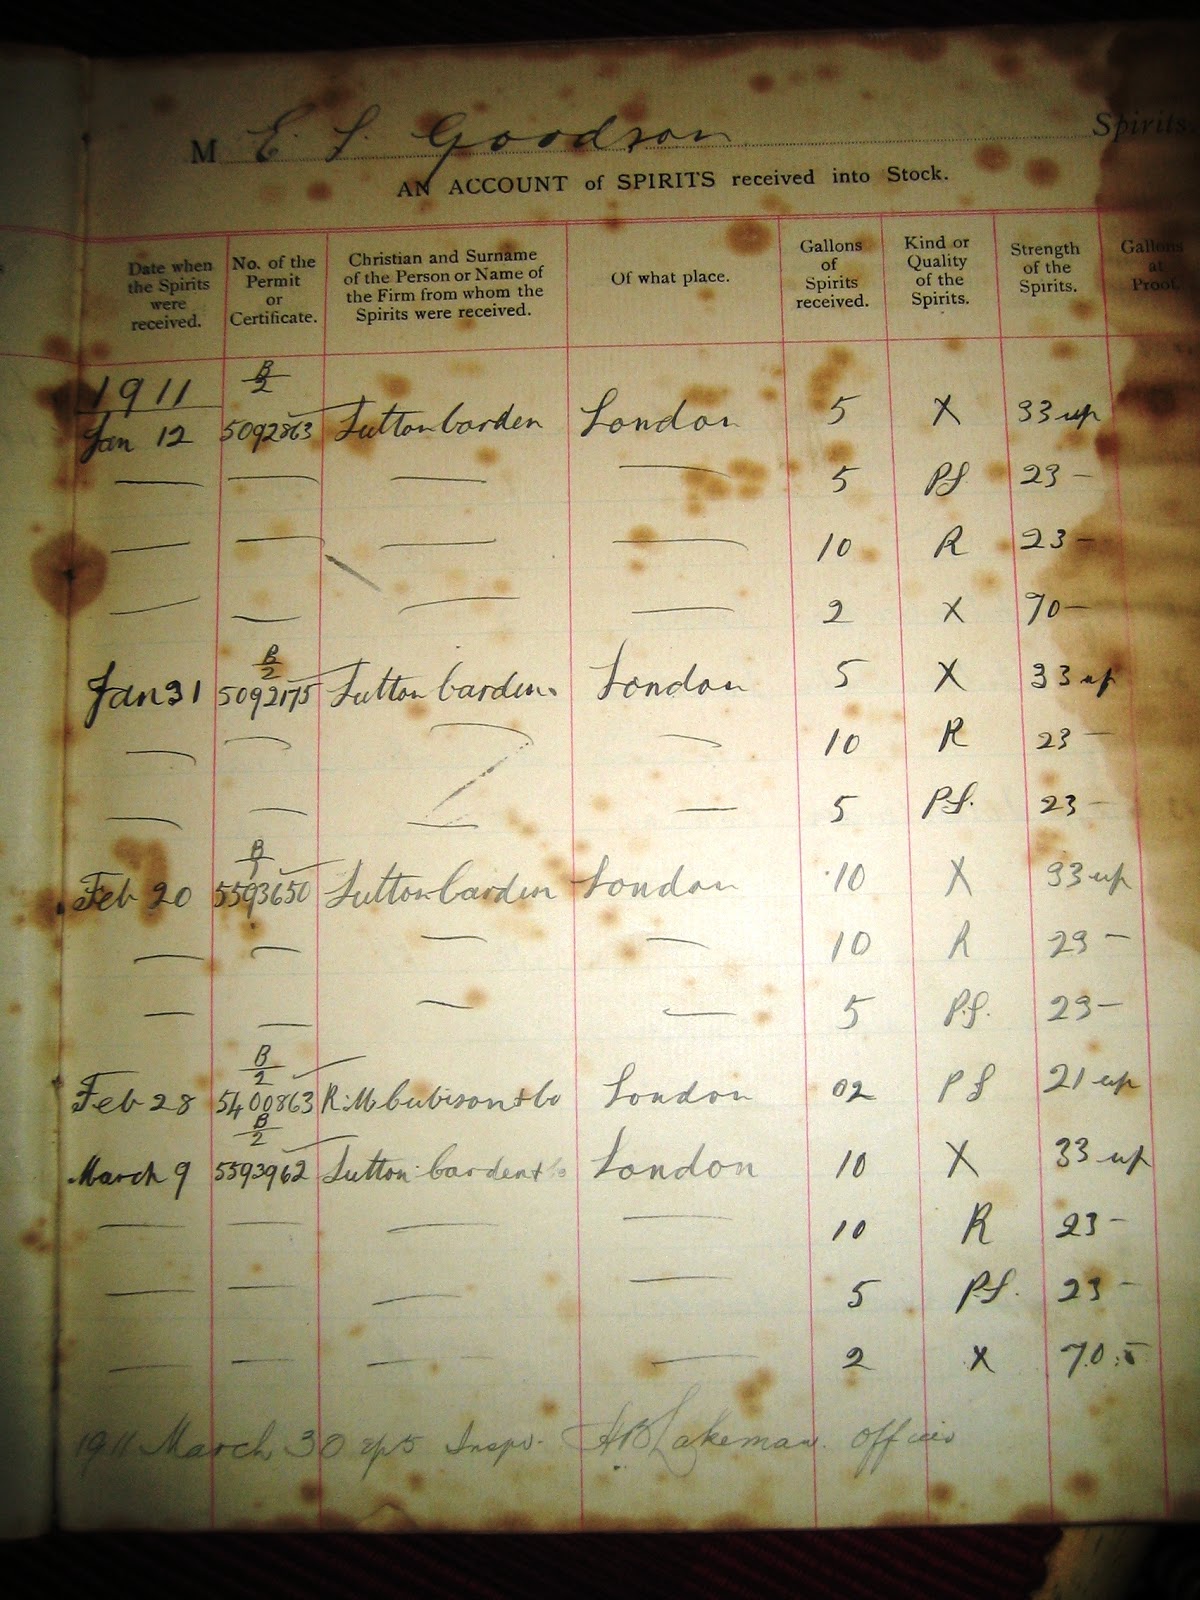 M E. S. Goodson Spirits.
AN ACCOUNT of SPIRITS received into Stock.
Date when the Spirits were received. No. of the Permit or Certificate. Christian and Surname of the Person or Name of the Firm from whom the Spirits were received. Of what place. Gallons of Spirits received. Kind or Quality of the Spirits. Strength of the Spirits. Gallons at Proof.
1911 B/2
Jan 12 5092863 Sutton Carden London 5 X 33 up
— — — — 5 PS 23 —
— — — — 10 R 23 —
— — — — 2 X 70 —
B/2
Jan 31 5092175 Sutton Carden London 5 X 33 up
— — — — 10 R 23 —
— — — — 5 P.S. 23 —
B/1
Feb 20 5593650 Sutton Carden London 10 X 33 up
— — — — 10 R 23 —
— — — — 5 P.S. 23 —
B/2
Feb 28 5400863 R. M. Cubison & Co London 02 PS 21 up
B/2
March 9 5593962 Sutton Carden & Co London 10 X 33 up
— — — — 10 R 23 —
— — — — 5 P.S. 23 —
— — — — 2 X 70
1911 March 30 Inspd. HB Lakeman Officer